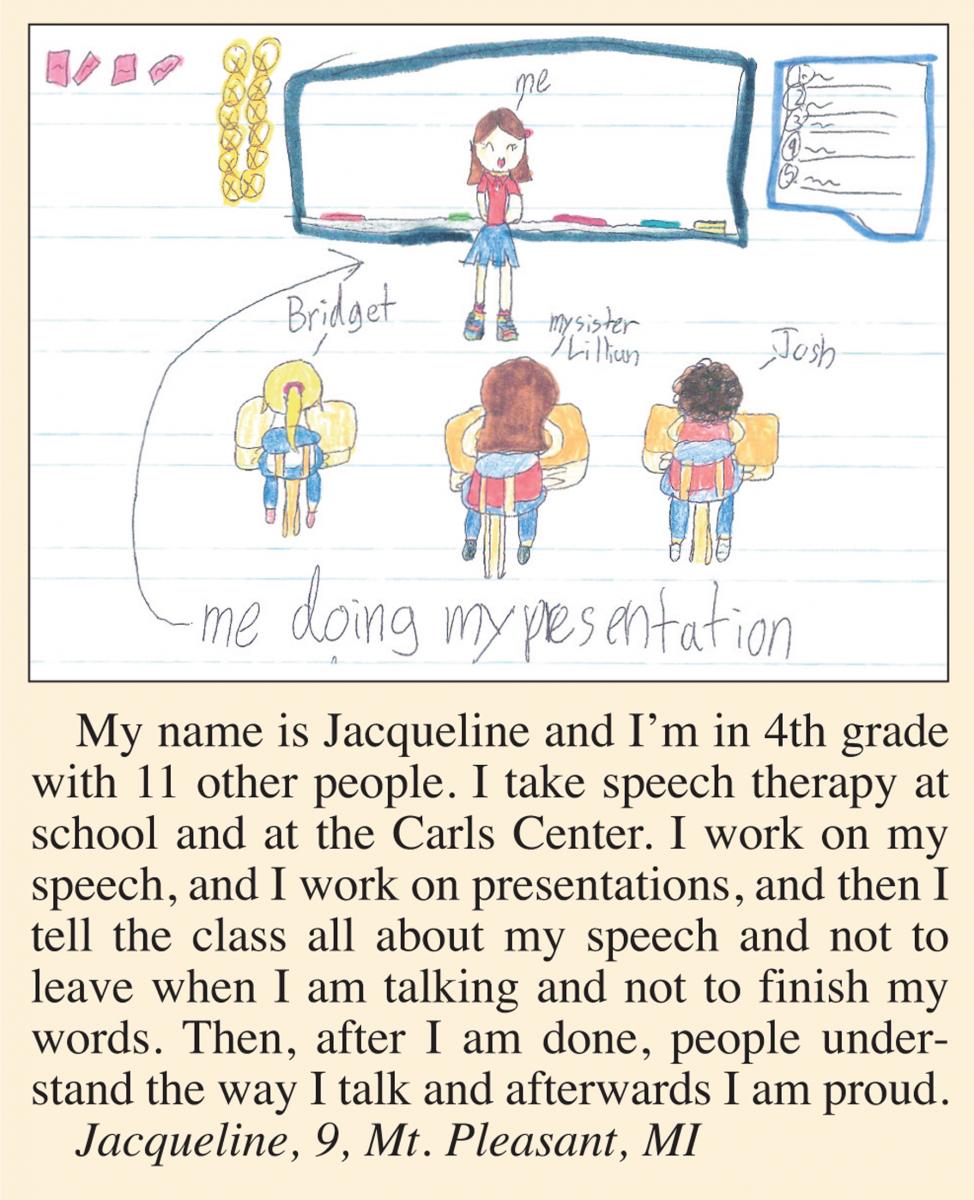 me
1
2
3
4
5
Bridget
my sister
Lillian
Josh
me doing my presentation
My name is Jacqueline and I’m in 4th grade
with 11 other people. I take speech therapy at
school and at the Carls Center. I work on my
speech, and I work on presentations, and then I
tell the class all about my speech and not to
leave when I am talking and not to finish my
words. Then, after I am done, people under-
stand the way I talk and afterwards I am proud.
Jacqueline, 9, Mt. Pleasant, MI